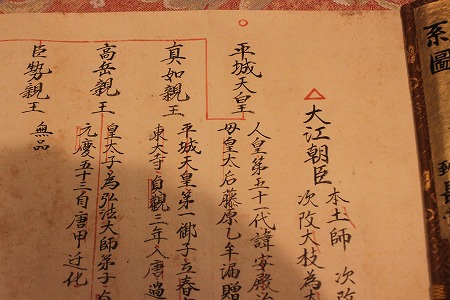 系圖
大江朝臣
本土師 次改
次改大枝為
平城天皇
人皇第五十一代諱安殿
母皇太后藤原乙牟漏贈
真如親王
平城天皇第一御子立春
東大寺貞觀三年入唐過
高岳親王
皇太子為弘法大師弟子
元慶五十三自唐申迁化
臣勢親王
無品